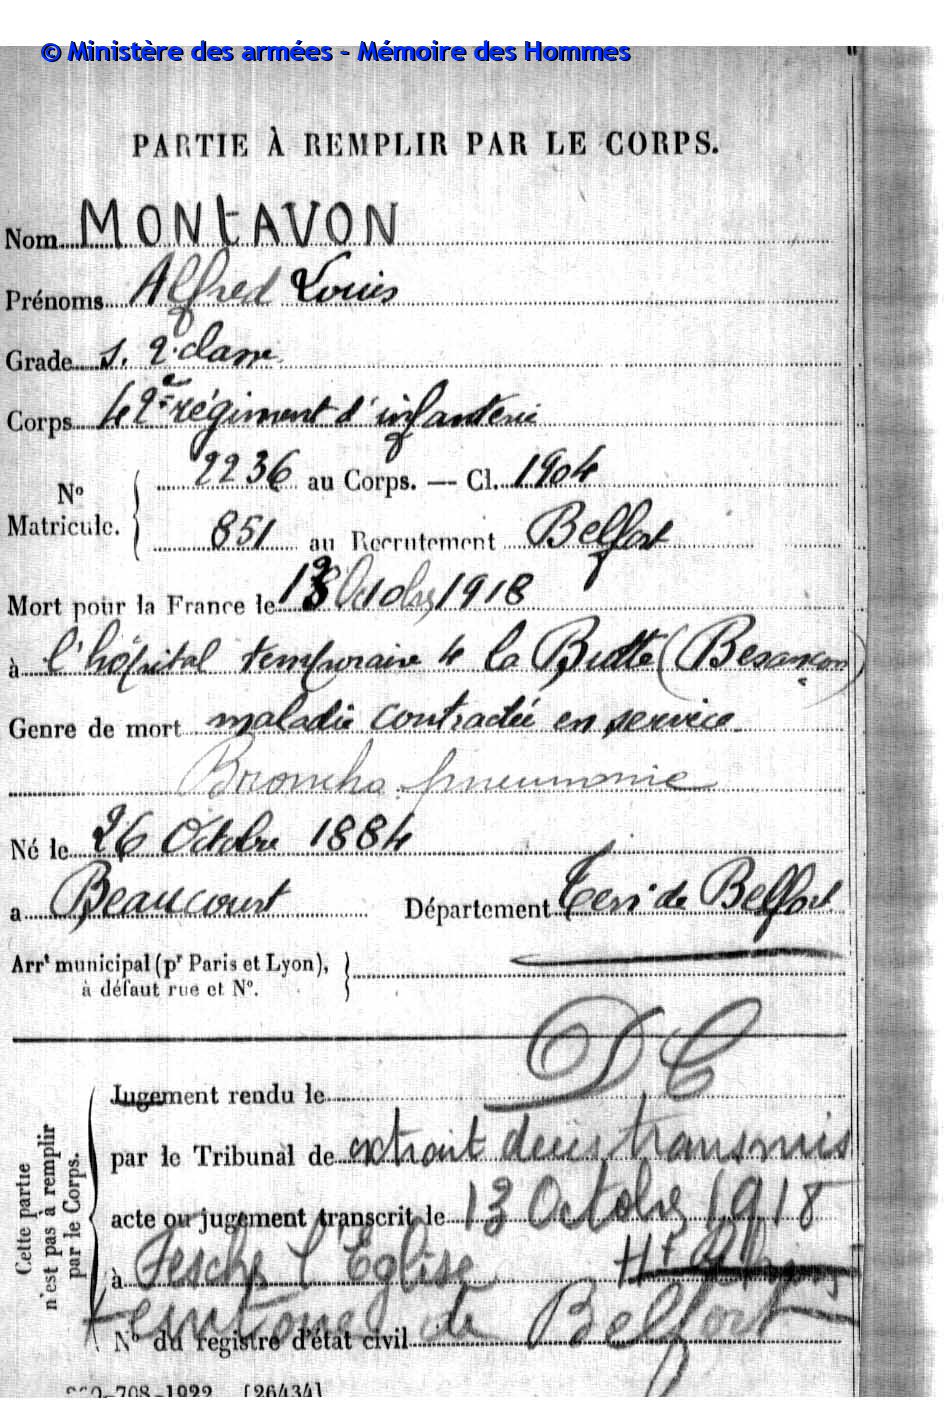 © Ministère des armées - Mémoire des Hommes
PARTIE À REMPLIR PAR LE CORPS.
Nom MONtAVON
Prénoms Alfred Louis
Grade s. 2.classe
Corps 42e régiment d'infanterie
N° Matricule. 2236 au Corps. — Cl. 1904
851 au Recrutement Belfort
Mort pour la France le 13 Octobre 1918
à l'hôpital temporaire de la Butte (Besançon)
Genre de mort maladie contractée en service
Broncho-pneumonie
Né le 26 Octobre 1884
a Beaucourt Département Terr. de Belfort
Arrt municipal (pr Paris et Lyon),
à défaut rue et N°.
DC
Cette partie n'est pas à remplir par le Corps.
Jugement rendu le
par le Tribunal de extrait décès transmis
acte ou jugement transcrit le 13 Octobre 1918
à Fesche l'Eglise Ht
territoire de Belfort
N° du registre d'état civil
708-1922. [26434]